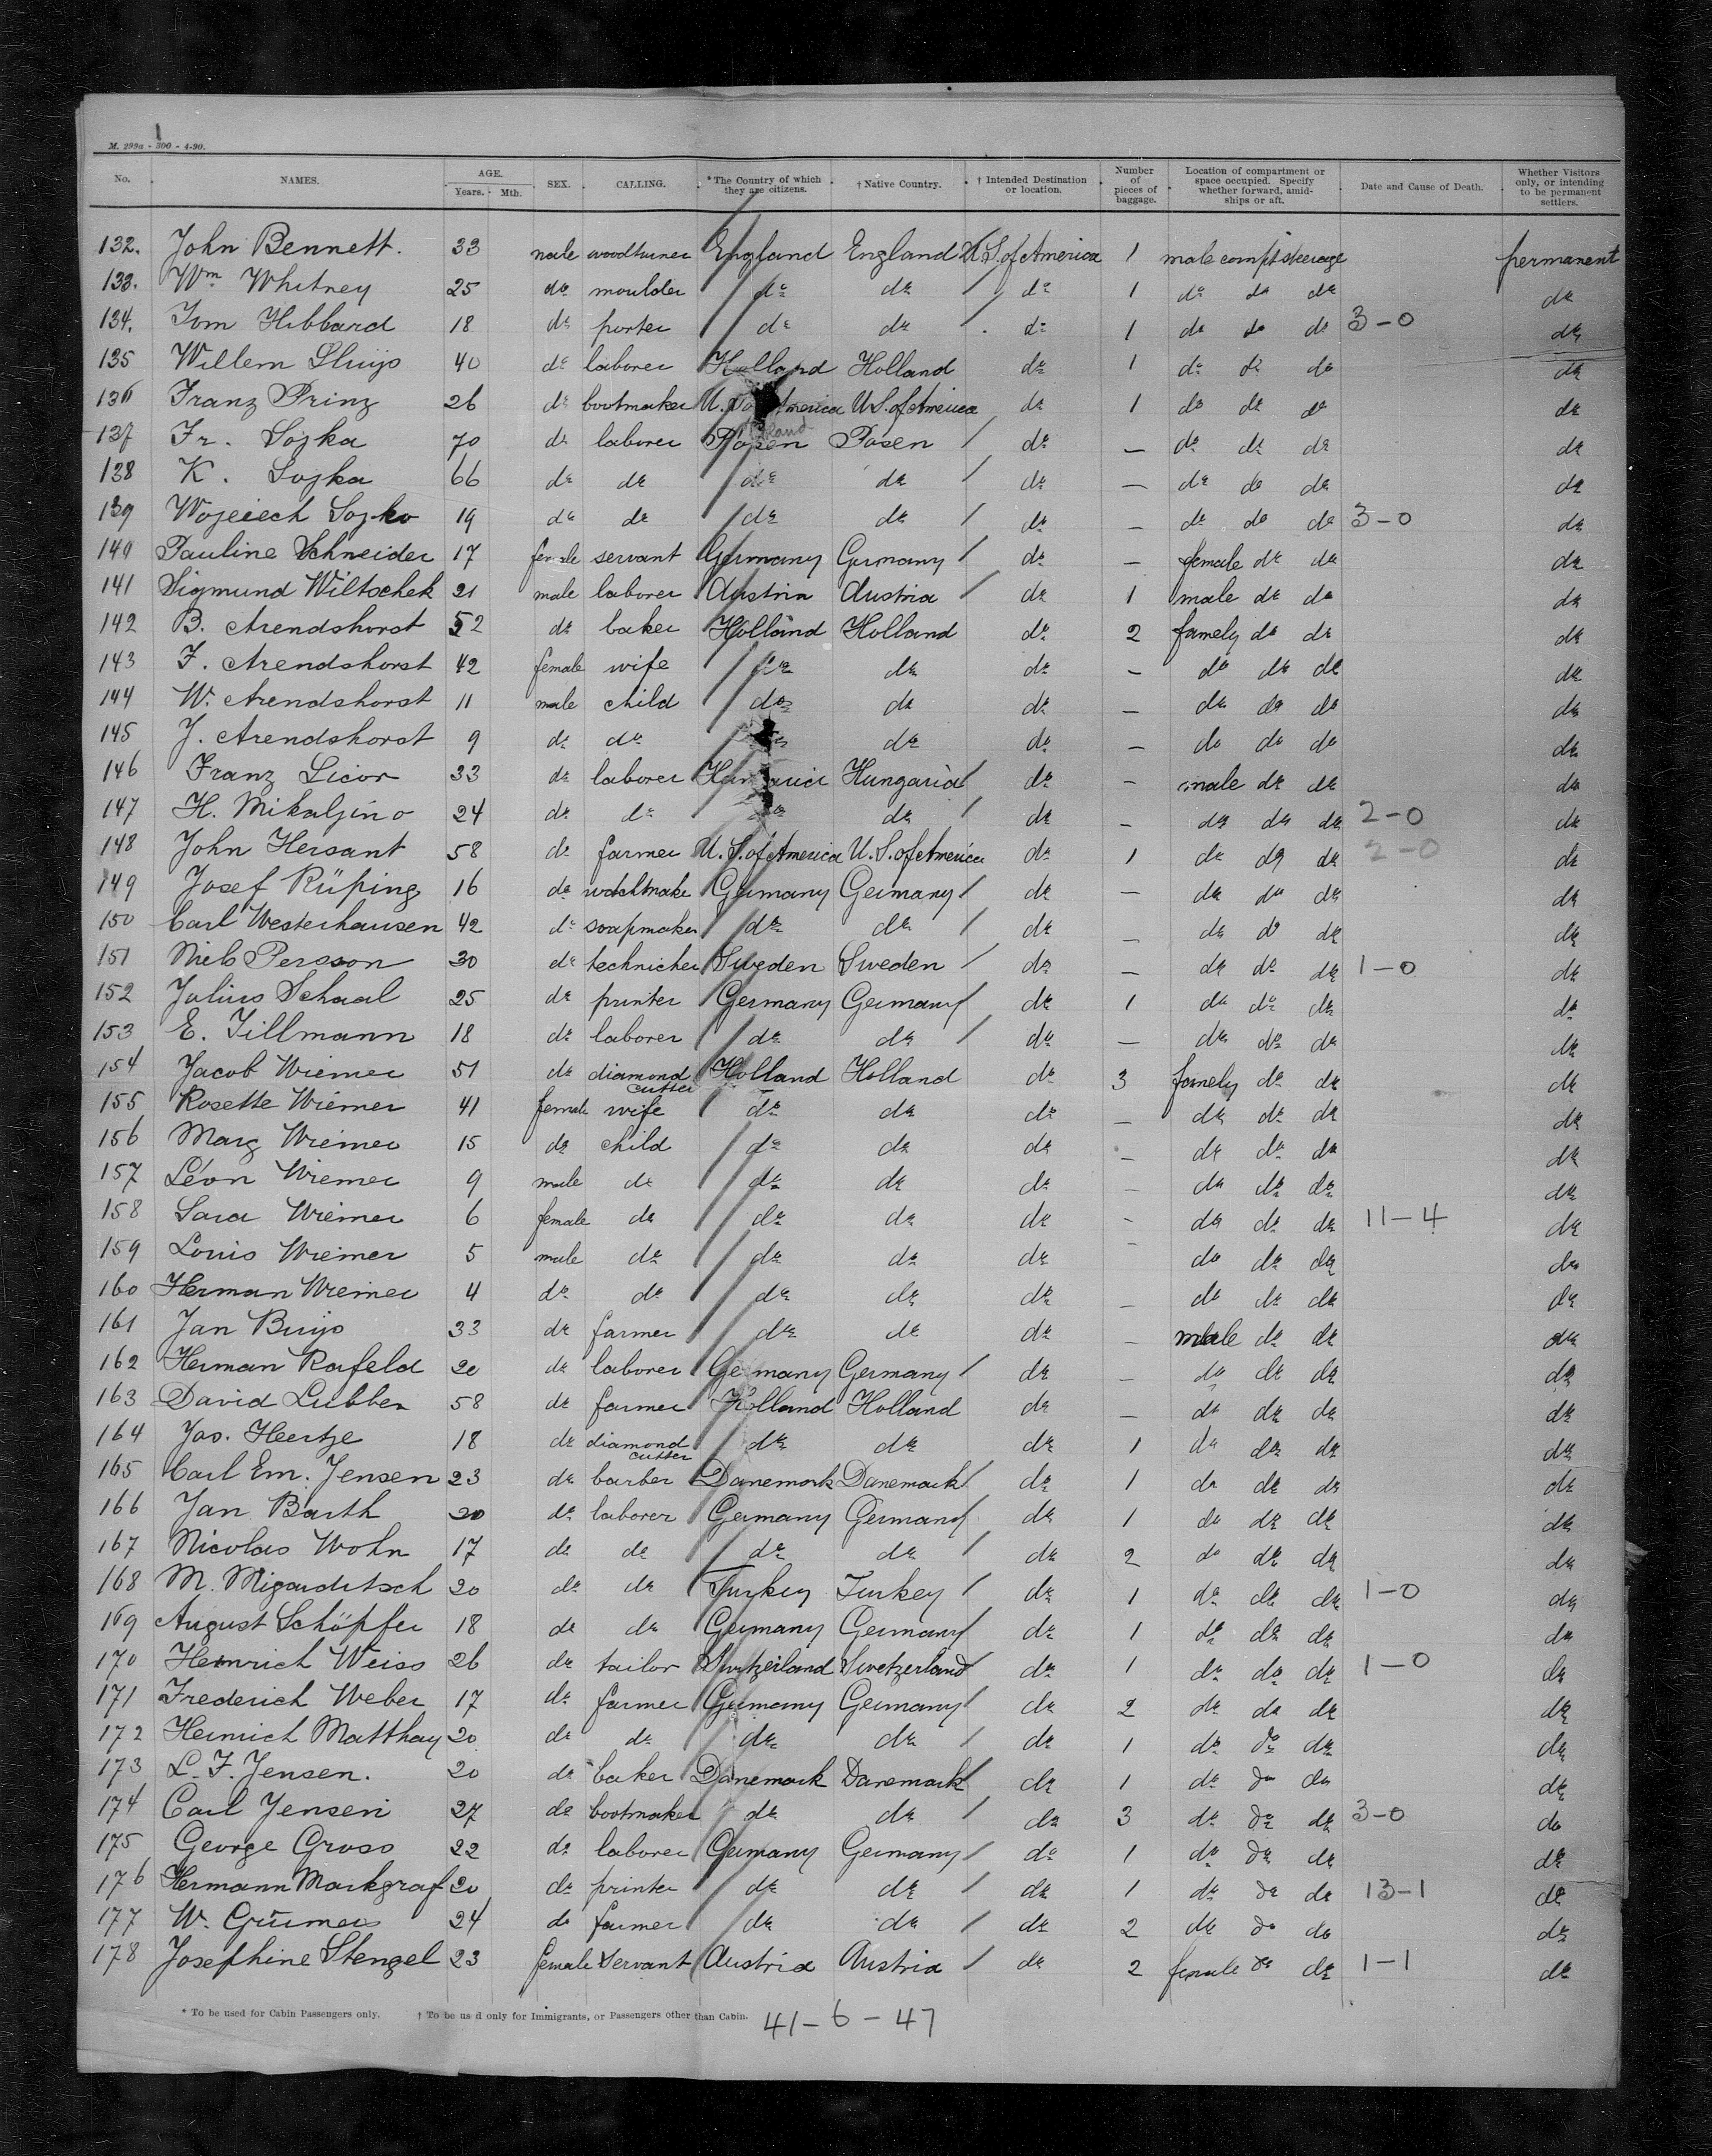 M. 299a - 300 - 4-90.
No. NAMES. AGE. Years. Mth. SEX. CALLING. *The Country of which they are citizens. † Native Country. † Intended Destination or location. Number of pieces of baggage. Location of compartment or space occupied. Specify whether forward, amidships or aft. Date and Cause of Death. Whether Visitors only, or intending to be permanent settlers.
132. John Bennett. 33 male woodturner England England U.S. of America 1 male compt steerage permanent
133. Wm Whitney 25 do moulder do do do 1 do do do do
134. Tom Hibbard 18 do porter do do do 1 do do do 3-0 do
135 Willem Sluijs 40 do laborer Holland Holland do 1 do do do do
136 Franz Prinz 26 do bootmaker U.S. of America U.S. of America do 1 do do do do
137 Fr. Sojka 70 do laborer Posen Posen do — do do do do
138 K. Sojka 66 do do do do do — do do do do
139 Wojciech Sojka 19 do do do do do — do do do 3-0 do
140 Pauline Schneider 17 female servant Germany Germany do — female do do do
141 Sigmund Wiltschek 21 male laborer Austria Austria do 1 male do do do
142 B. Arendshorst 52 do baker Holland Holland do 2 famely do do do
143 F. Arendshorst 42 female wife do do do — do do do do
144 W. Arendshorst 11 male child do do do — do do do do
145 J. Arendshorst 9 do do do do do — do do do do
146 Franz Licor 33 do laborer Hungaria Hungaria do — male do do do
147 H. Mikaljino 24 do do do do do — do do do 2-0 do
148 John Hersant 58 do farmer U.S. of America U.S. of America do 1 do do do 2-0 do
149 Josef Rüping 16 do watchmaker Germany Germany do — do do do do
150 Carl Westerhausen 42 do soapmaker do do do — do do do do
151 Niels Persson 30 do technicker Sweden Sweden do — do do do 1-0 do
152 Julius Schaal 25 do printer Germany Germany do 1 do do do do
153 E. Tillmann 18 do laborer do do do — do do do do
154 Jacob Wiener 51 do diamond cutter Holland Holland do 3 famely do do do
155 Rosette Wiener 41 female wife do do do — do do do do
156 Marg Wiener 15 do child do do do — do do do do
157 Léon Wiener 9 male do do do do — do do do do
158 Sara Wiener 6 female do do do do — do do do 11-4 do
159 Louis Wiener 5 male do do do do — do do do do
160 Herman Wiener 4 do do do do do — do do do do
161 Jan Buijs 33 do farmer do do do — male do do do
162 Herman Rafeld 20 do laborer Germany Germany do — do do do do
163 David Lubben 58 do farmer Holland Holland do — do do do do
164 Jas. Heertje 18 do diamond cutter do do do 1 do do do do
165 Carl Em. Jensen 23 do barber Danemark Danemark do 1 do do do do
166 Jan Barth 20 do laborer Germany Germany do 1 do do do do
167 Nicolas Wohn 17 do do do do do 2 do do do do
168 M. Migarditsch 20 do do Turkey Turkey do 1 do do do 1-0 do
169 August Schöpfer 18 do do Germany Germany do 1 do do do do
170 Heinrich Weiss 26 do tailor Switzerland Swetzerland do 1 do do do 1-0 do
171 Frederich Weber 17 do farmer Germany Germany do 2 do do do do
172 Heinrich Matthay 20 do do do do do 1 do do do do
173 L. F. Jensen. 20 do baker Danemark Danemark do 1 do do do do
174 Carl Jensen 27 do bootmaker do do do 3 do do do 3-0 do
175 George Gross 22 do laborer Germany Germany do 1 do do do do
176 Hermann Markgraf 20 do printer do do do 1 do do do 13-1 do
177 W. 24 do farmer do do do 2 do do do do
178 Josephine Stengel 23 female servant Austria Austria do 2 female do do 1-1 do
* To be used for Cabin Passengers only. † To be used only for Immigrants, or Passengers other than Cabin. 41-6-47